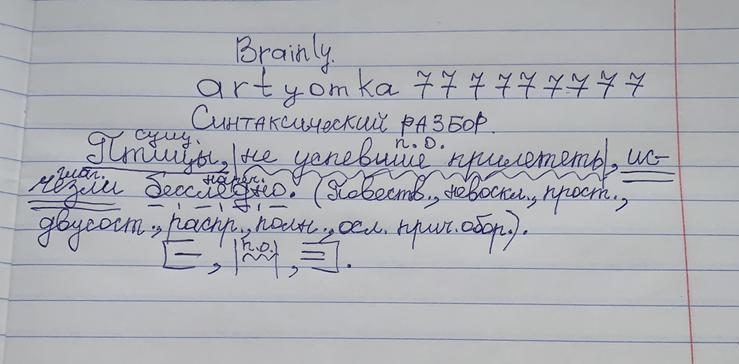 Brainly.
artyomka 777777777
Синтаксический разбор.
сущ. п.о.
Птицы, |не успевшие прилететь|, ис-
глаг. нареч.
чезли бесследно. (Повеств., невоскл., прост.,
двусост., распр., полн., осл. прич. обор.).
п.о.